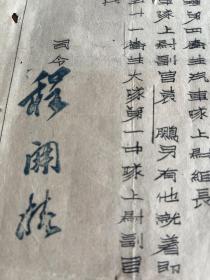 第四衛生汽車隊上尉組長
車隊上尉副官袁 鵬另有他就着即
十一衛生大隊第一中隊上尉副官
司令